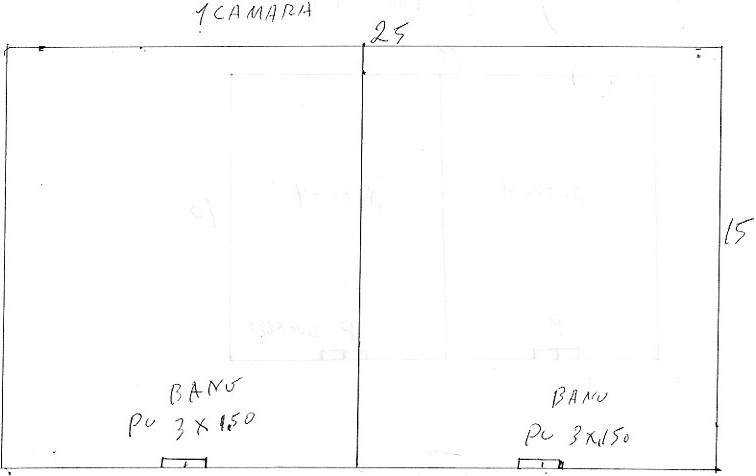 1 CAMARA
25
15
BANO
PU 3 X 1,50
BANO
PU 3 X 1,50